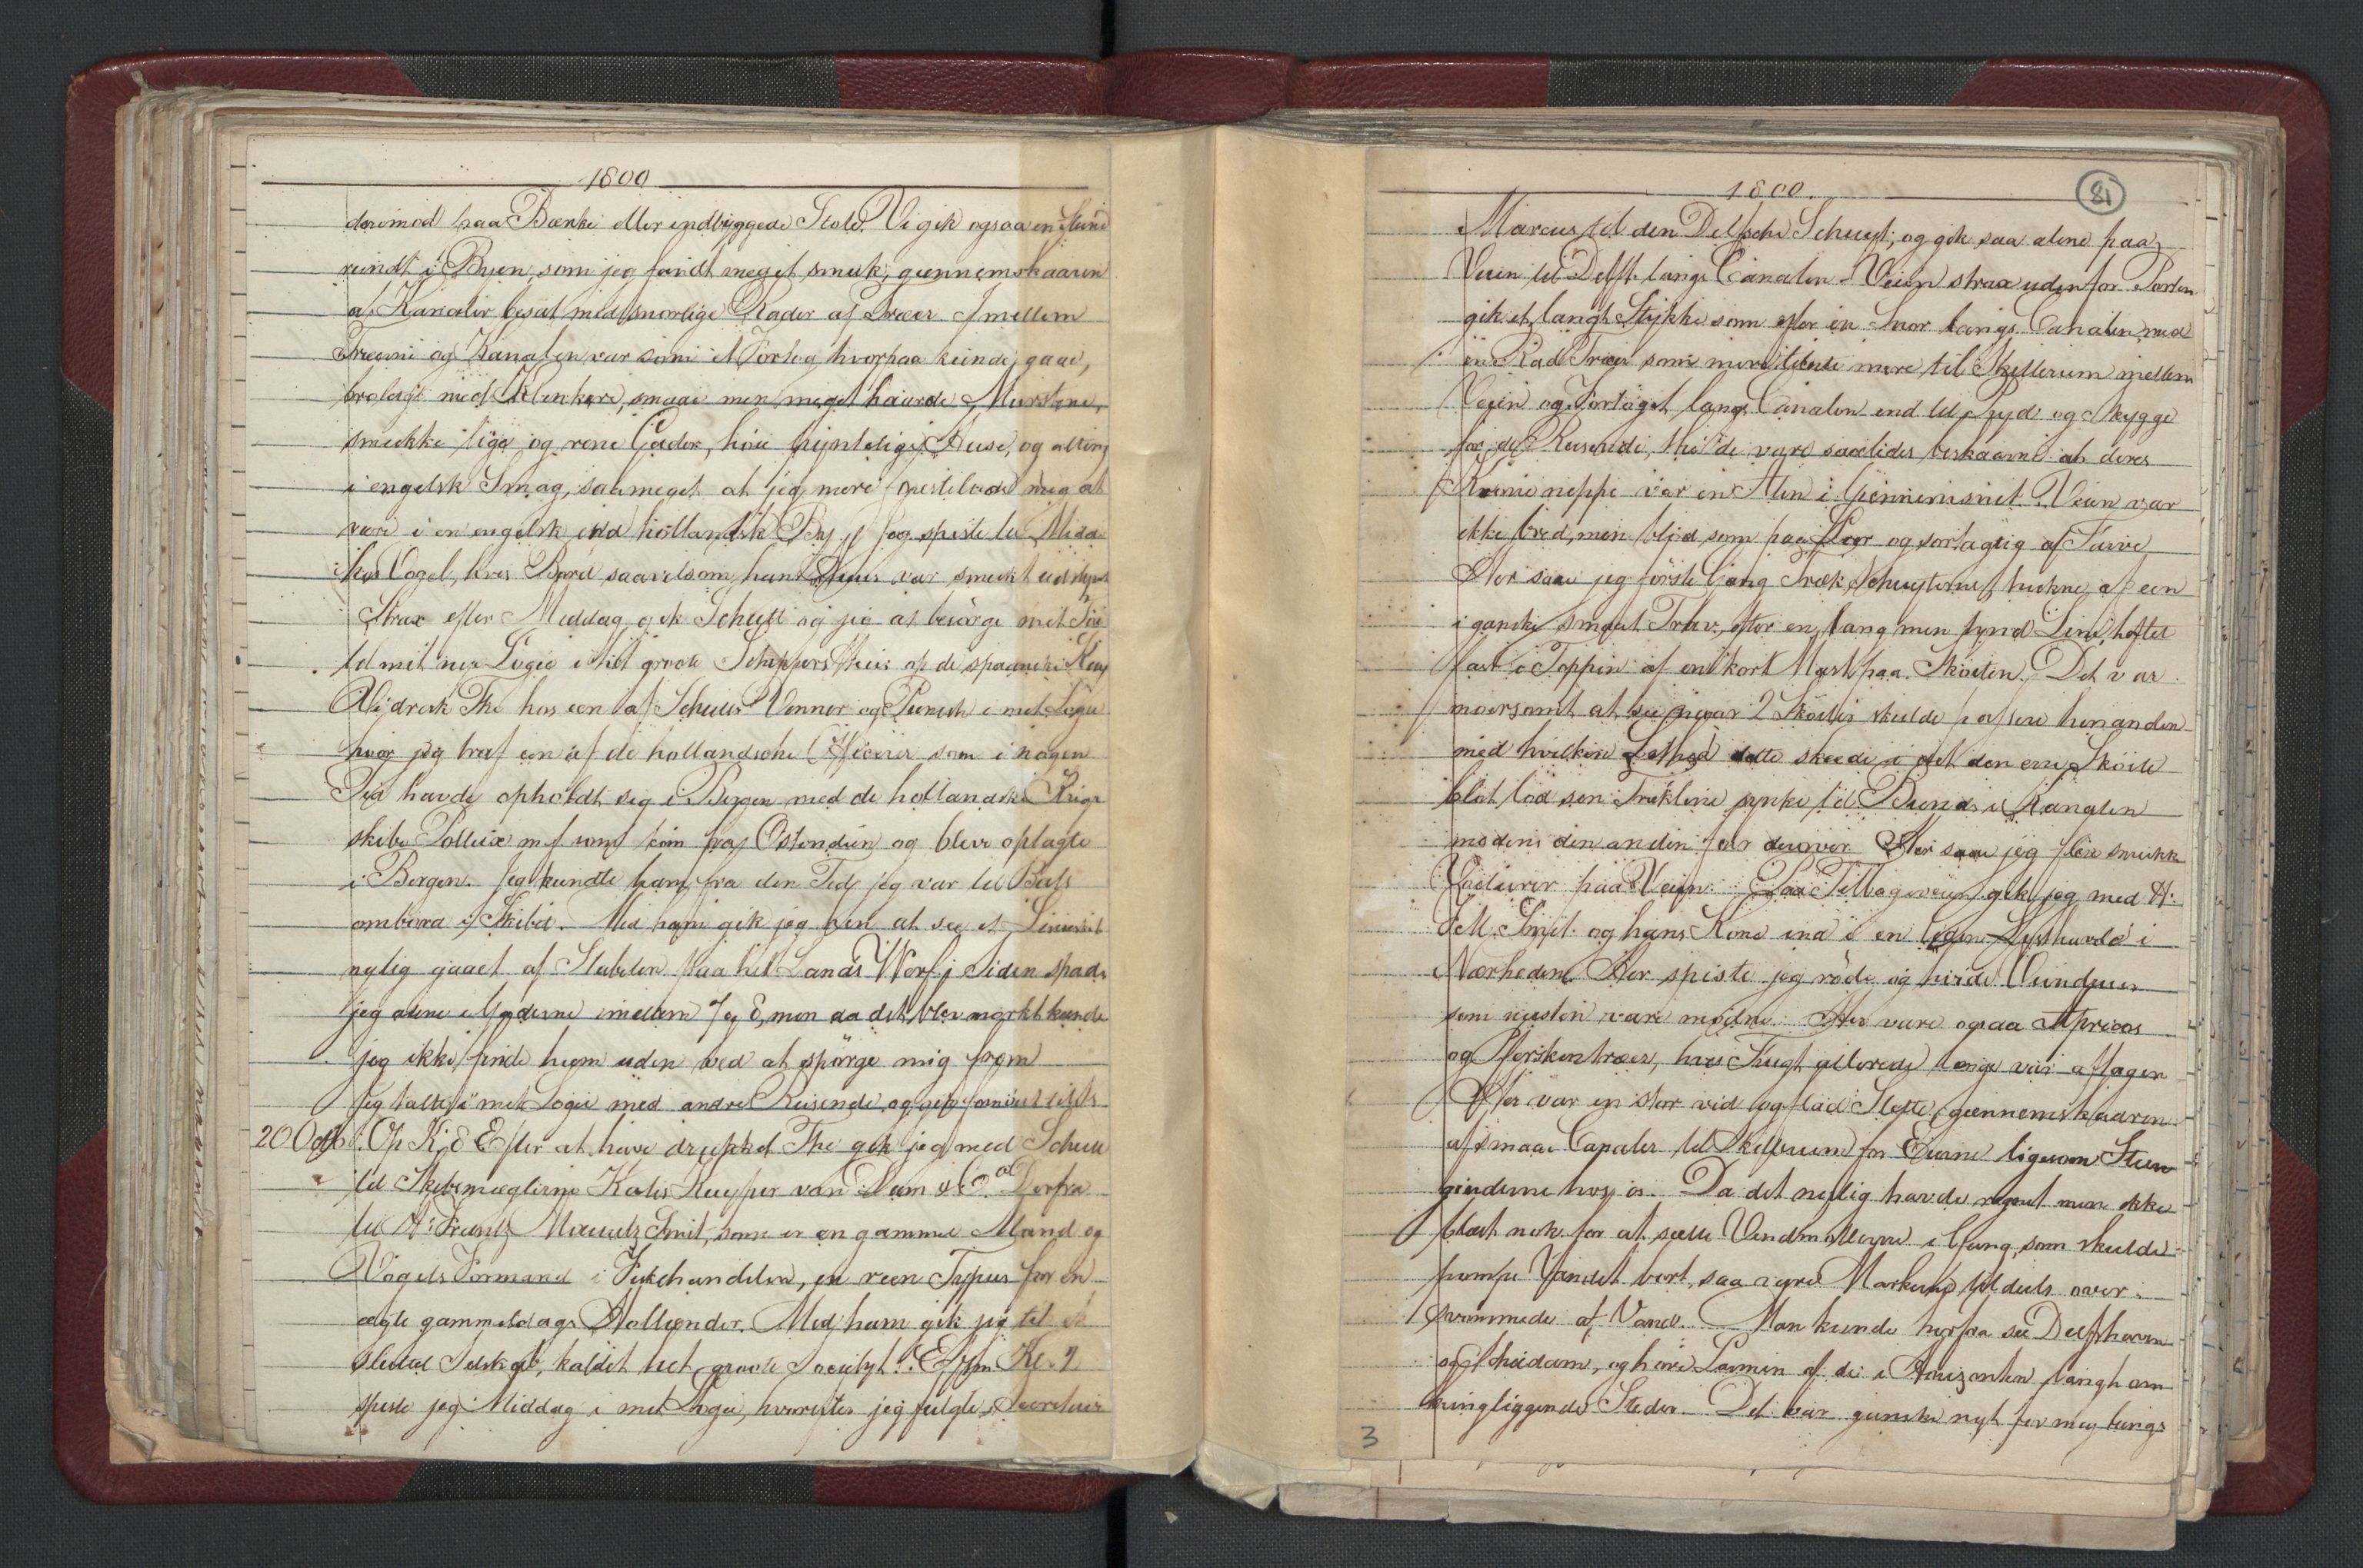 1800
derimod paa Bænke eller indbyggede Stole. Vi gik ogsaa en Stund
rundt i Byen, som jeg fandt meget smuk, giennemskaaren
af Kanaler besat med snorlige Rader af Træer. Imellem
Træerne og Kanalen var som et Fortog hvorpaa kunde gaae,
brolagt med Klinkere, smaae men meget haarde Mursteene,
smukke lige og rene Gader, høie pyntelige Huse, og alting
i engelsk Smag, saameget at jeg mere forestillede mig at
være i en engelsk end hollandsk By. Jeg spiste til Midda
hos Vogel, hvis Bord saavelsom hans Huus var smukt
Strax efter Middag gik Schutt og jeg at besørge mit Tøi
til mit nye Logie i het groote Schippers Huis op de spaansche Kay
Vi drak The hos een af Schutts Venner og Punsch i mit Logie
hvor jeg traf een af de hollandske Officerer som i nogen
Tid havde opholdt sig i Bergen med de hollandske Krigs
skibe Pollux m f som kom fra Ostindien og bleve oplagte
i Bergen. Jeg kiendte ham fra den Tid jeg var til Bals
ombord i Skibet. Med ham gik jeg hen at see et Linieskib
nylig gaaet af Stabelen paa het Lands Werf. Siden spads
jeg alene i Gaderne imellem 7 og 8, men da det blev mørkt kunde
jeg ikke finde hiem uden ved at spørge mig frem
Jeg talte i mit Logie med andre Reisende, og gik
20 Op Kl 8 Efter at have drukket The gik jeg med Schutt
til Skibsmæglerne Kolis Kuyper van Dam & Co. Derfra
til Hr Frantz Mauritz Smit, som er en gammel Mand og
Vogels Formand i Fiskehandelen, en reen Typus for en
ægte gammeldags Hollænder. Med ham gik jeg til et
sluttet Selskab, kaldet het groote Societyt. Efterm Kl. 2
spiste jeg Middag i mit Logie, hvorefter jeg fulgte
1800.
81
Marcus til den Delfsche Schuyt, og gik saa alene paa
Veien til Delft langs Canalen. Veien strax udenfor Porten
gik et langt Stykke som efter en Snor langs Canalen, med
en Rad Træer som mere tiente mere til Skillerum mellem
Veien og Fortoget langs Canalen end til Pryd og Skygge
for de Reisende, thi de vare saaledes beskaarne at deres
Krone neppe var en Alen i Giennemsnit. Veien var
ikke bred, men blød som paa Leer og sortagtig af Tørve
Her saae jeg første Gang Træk Schuyterne trukne af een
i ganske smaat Trav, efter en lang men tynd Line, heftet
fast i Toppen af en kort Mast paa Skøiten. Det var
moersomt at see naar 2 Skøiter skulde passere hinanden
med hvilken Lethed dette skeede i det den ene Skøite
blot lod sin Trækline synke til Bunds i Kanalen
medens den anden foer derover. Her saae jeg flere smukke
Voiturer paa Veien. Paa Tilbageveien gik jeg med Hr.
F M. Smit og hans Kone ind i en liden Lysthave i
Nærheden. Her spiste jeg røde og hvide Viindruer
som næsten vare modne. Her vare ogsaa Apricos
og Ferskentræer, hvis Frugt allerede længe var aftagen
Her var en stor vid og flad Slette giennemskaaren
af smaae Canaler til Skillerum for Eierne ligesom Steen
gierderne hos os. Da det nylig havde regnet men ikke
blæst nok for at sætte Vindmøllerne i Gang, som skulde
pumpe Vandet bort, saa vare Markerne tildeels over-
svømmede af Vand. Man kunde herfra see Delfshaven
og Schiedam, og høre Larmen af de i Horizonten langt om
kringliggende Steder. Det var ganske nyt for mig langs
3